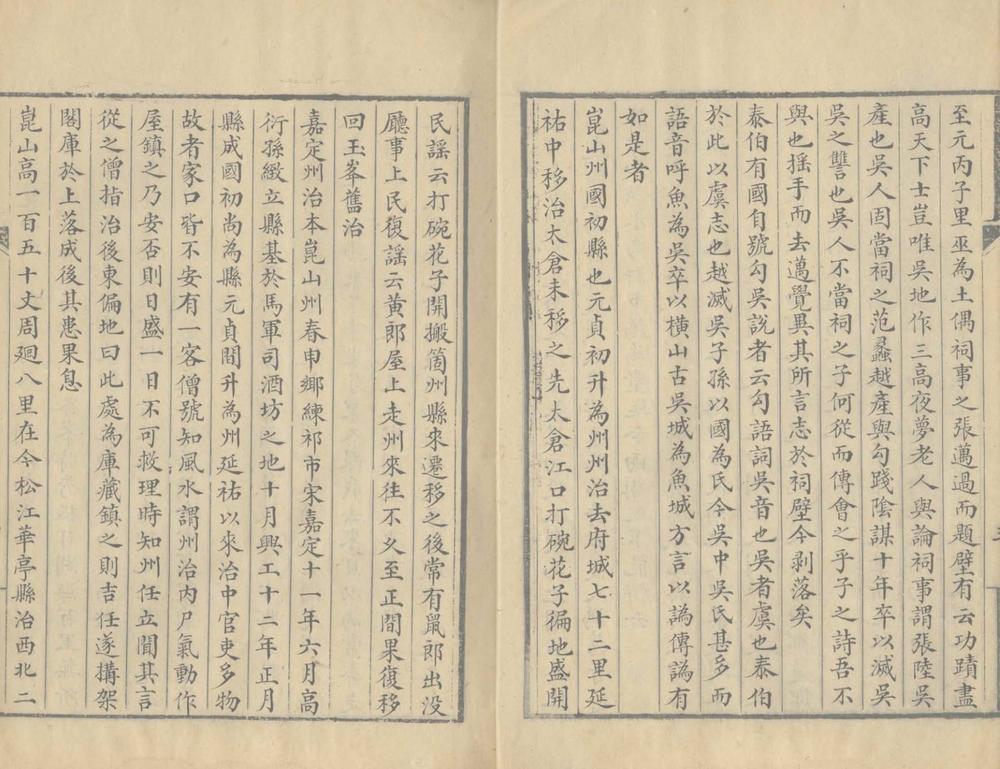 至元丙子里巫為土偶祠事之張邁過而題壁有云功蹟盡
高天下士豈唯吳地作三高夜夢老人與論祠事謂張陸吳
產也吳人固當祠之范蠡越產與勾踐陰謀十年卒以滅吳
吳之讐也吳人不當祠之子何從而傳會之乎子之詩吾不
與也揺手而去邁覺異其所言志於祠壁今剥落矣
泰伯有國自號勾吳說者云勾語詞吳音也吳者虞也泰伯
於此以虞志也越滅吳子孫以國為氏今吳中吳氏甚多而
語音呼魚為吳卒以橫山古吳城為魚城方言以譌傳譌有
如是者
崑山州國初縣也元貞初升為州州治去府城七十二里延
祐中移治太倉未移之先太倉江口打碗花子徧地盛開
民謡云打碗花子開搬箇州縣來遷移之後常有鼠郎出没
廳事上民復謡云黄郎屋上走州來往不乆至正間果復移
回玉峯舊治
嘉定州治本崑山州春申鄉練祁市宋嘉定十一年六月高
衍孫緻立縣基於馬軍司酒坊之地十月興工十二年正月
縣成國初尚為縣元貞間升為州延祐以來治中官吏多物
故者家口皆不安有一客僧號知風水謂州治内尸氣動作
屋鎮之乃安否則日盛一日不可救理時知州任立聞其言
從之僧指治後東偏地曰此處為庫藏鎮之則吉任遂搆架
閣庫於上落成後其患果息
崑山高一百五十丈周廻八里在今松江華亭縣治西北二